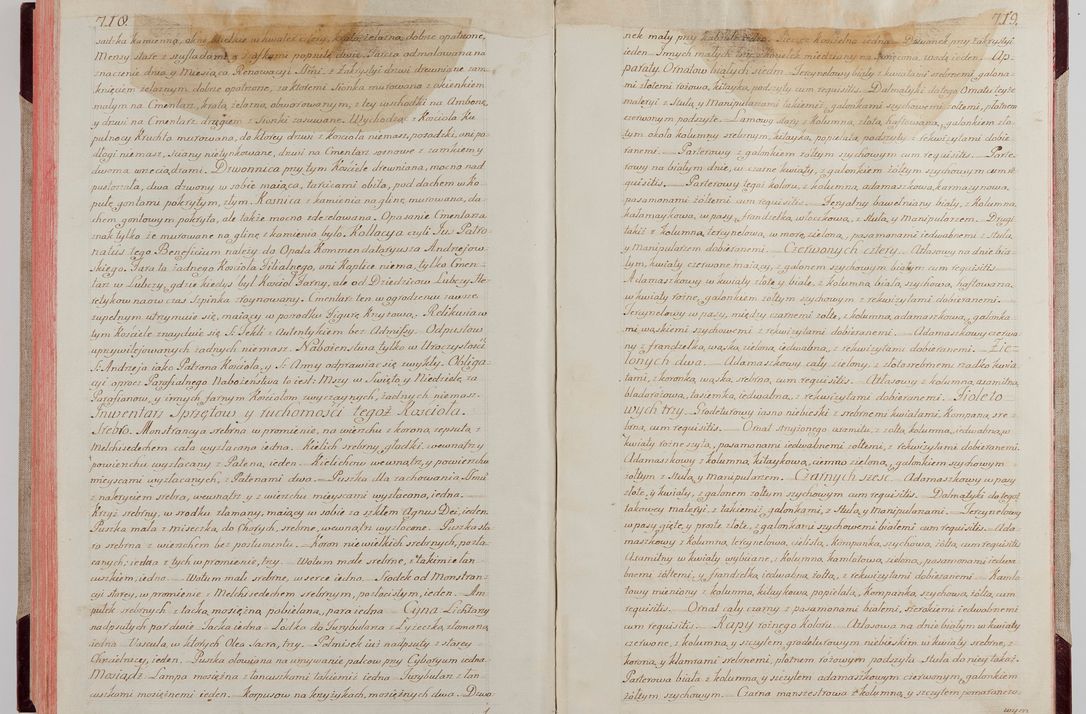 718.
sadzka kamienna, okna wielkie w kwaterach trzy, krata żelazna, dobrze opatrzone,
Menzy stare z szufladami y szafkami popsute dwa. Tarcza odmalowana na
znaczenie dnia y Miesiąca Renowacyi Stni. z Zakrystyi drzwi drewniane zam-
knięciem żelaznym, dobrze opatrzone, za ktoremi Sionka murowana z okienkiem
małym na Cmentarz, krata żelazna, obwarowanym, z tey wschodki na Ambonę
y drzwi na Cmentarz drągiem z Sionki zasuwane. Wychodząc z Kościoła Ku
pułnocy Kruchta murowana, do ktorey drzwi z Kościoła niemasz, posadzki, ani po-
dłogi niemasz, ściany nietynkowane, drzwi na Cmentarz sosnowe z zamkiem y
dwoma wrzeciądzami. Dzwonnica przy tym Kościele drewniana, mocno nad
pustoszała, dwa dzwony w sobie maiąca, tarcicami obita, pod dachem w Ko-
pułę gontami pokrytym, złym. Kosnica z kamienia na glinę murowana, da-
chem gontowym pokryta, ale także mocno zdezelowana. Opasanie Cmentarza
znak tylko że murowane na glinę z kamienia było. Kollacya czyli Jus Patro-
natus tego Beneficium należy do Opata Kommendataryusza Andrzejow-
skiego. Ta Para żadnego Kościoła Filialnego, ani Kaplice niema, tylko Cmen-
tarz w Lubczy, gdzie kiedyś był Kościoł Farny, ale od Dziedzicow Lubczy He-
retykow naow czas Szpinka zruynowany. Cmentarz ten w ogrodzeniu zawsze
zupełnym utrzymuie się, maiący w posrodku Figurę Krzyżową. Relikwia w
tym Kościele znayduie się S. Tekli z Autentykiem bez Admissy. Odpustow
uprzywilejowanych żadnych niemasz. Nabożenstwa tylko w Uroczystość
S. Andrzeja iako Patrona Kościoła, y S. Anny odprawiać się zwykły. Obliga-
cyi oprocz Parafialnego Nabożenstwa to iest: Mszy w Swięta y Niedziele za
Parafianow, y innych farnym Kościołom zwyczaynych, żadnych niemasz.
Inwentarz Sprzętow y ruchomości tegoż Kościoła.
Srebro. Monstrancya srebrna w promienie, na wierzchu z koroną zepsutą, z
Melchisedechem cała wyzłacana iedna. Kielich srebrny, gładki, wewnątrz y
powierzchu wyzłacany z Pateną, ieden. Kielichow wewnątrz, y powierzchu
mieyscami wyzłacanych, z Patenami dwa. Puszka dla zachowania Smi
z nakryciem srebrna, wewnątrz y z wierzchu mieyscami wyzłacana, iedna.
Krzyż srebrny, w srodku złamany, maiący w sobie za szkłem Agnus Dei, ieden
Puszka mała z miseczką, do Chorych, srebrne, wewnątrz wyzłocone. Puszka sta-
ra srebrna z wierzchem bez postumentu. Koron niewielkich srebrnych, pozła-
canych; iedna z tych w promienie, trzy. Wotum małe srebrne, z takimże łan-
cuszkiem, iedno. Wotum małe srebrne, w serce iedno. Srodek od Monstran-
cyi starey, w promienie z Melchisedechem srebrnym, pozłocistym, ieden. Am-
pułek srebrnych z tacką mosiężną pobielaną, para iedna. Cyna. Lichtarzy
nadpsutych par dwie. Tacka iedna. Łodka do Turybularza z Łyżeczką złamaną
iedna. Vascula, w ktorych Olea sacra, trzy. Połmisek iuż nadpsuty z starey
Chrzcielnicy, ieden. Puszka ołowiana na umywanie palcow przy Cyboryum iedna.
Mosiądz. Lampa mosiężna z łancuszkami takiemiż iedna. Turybularz z łan-
cuszkami mosiężnemi ieden. Korpusow na krzyżykach, mosiężnych dwa. Dzwo-
719.
nek mały przy Zakrystyi Dzwonek przy Zakrystyi
ieden. Innych małych miedziany na święconą wodę ieden. Ap-
paraty. Ornatow białych siedm. Terzynelowy biały z kwiatami srebrnemi, galona-
mi złotemi rożowa, kitayką, podszyty cum requisitis. Dalmatyki do tego Ornatu teyże
materyi z Stułą, y Manipularzami takiemiż, galonkami szychowemi żołtemi, płotnem
czerwonym podszyte. Lamowy stary z Kolumną, złotą, haftowaną, galonkiem zło-
tym około kolumny srebrnym, kitayką, popielatą podszyty, z rekwizytami dobie-
ranemi. Parterowy z galonkiem żołtym szychowym cum requisitis. Parte-
rowy na białym dnie, w czarne kwiaty, z galonkiem żołtym szychowym cum re-
quisitis. Parterowy tegoż koloru, z kolumną, adamaszkową, karmazynową,
pasamonami żołtemi cum requisitis. Feryalny bawełniany biały, z kolumną,
kałamaykową, w pasy, frandzelką, włoczkową, z stułą, y manipularzem. Drugi
takiż z kolumną, terzynelową, w morę, zieloną, pasamonami iedwabnemi z Stułą
y Manipularzem dobieranemi. Czerwonych cztery. Atłasowy na dnie bia-
łym, kwiaty czerwone maiący, z galonem szychowym białym cum requisitis.
Adamaszkowy w kwiaty złote y białe, z kolumną białą, szychową, haftowaną,
w kwiaty rożne, galonkiem żołtym szychowym z rekwizytami dobieranemi.
Terzynelowy w pasy, między czarnemi żołte, z kolumną, adamaszkową, galonka-
mi wąskiemi szychowemi z rekwizytami dobieranemi. Adamaszkowy czerwo-
ny z frandzelką, wąską, zieloną, iedwabną, z rekwizytami dobieranemi. Zie-
lonych dwa. Adamaszkowy cały zielony, z złotosrebrnemi rzadko kwia-
tami, z koronką, wąską, srebrną, cum requisitis. Atłasowy z kolumną, axamitną,
bladorożową, tasiemką, iedwabną, z rekwizytami dobieranemi. Fioleto-
wych trzy. Grodeturowy iasno niebieski z srebrnemi kwiatami, Kompaną sre-
brną, cum requisitis. Ornat struyonego axamitu, z żołtą, kolumną, iedwabną, w
kwiaty rożne szytą, pasamonami iedwabnemi żołtemi, z rekwizytami dobieranemi.
Adamaszkowy z kolumną, kitaykową, ciemno zieloną, galonkiem szychowym
żołtym z Stułą, y manipularzem. Czarnych szesc. Adamaszkowy w pasy
złote, y kwiaty, z galonem żołtym szychowym cum requisitis. Dalmatyki do tegoż
takowey materyi z takiemiż galonkami, z Stułą, y Manipularzami. Terzynelowy
w pasy gięte, y proste złote, z galonkami szychowemi białemi cum requisitis. Ada-
maszkowy z kolumną, terzynelową, cielistą, kompanką, szychową, żołtą, cum requisitis
Axamitny w kwiaty wybiiane, z kolumną, kamlotową, zieloną, pasamonami iedwa-
bnemi żołtemi, y frandzelką iedwabną, żołtą, z rekwizytami dobieranemi. Kamlo-
towy mieniony z kolumną, kitaykową, popielatą, Kompanką, szychową, żołtą, cum
requisitis. Ornat cały czarny z pasamonami białemi, szerokiemi iedwabnemi
cum requisitis. Kapy rożnego koloru. Atłasowa na dnie białym w kwiaty
czerwone, z kolumną, y szczytem grodeturowym niebieskim w kwiaty srebrne, z
koroną, y klamrami srebrnemi, płotnem rożowym podszyta. Stuła do niey takaż.
Parterowa biała z kolumną, y szczytem adamaszkowym czerwonym, galonkiem
żołtym szychowym. Czarna manszestrowa z kolumną, y szczytem pomarancz-
wym